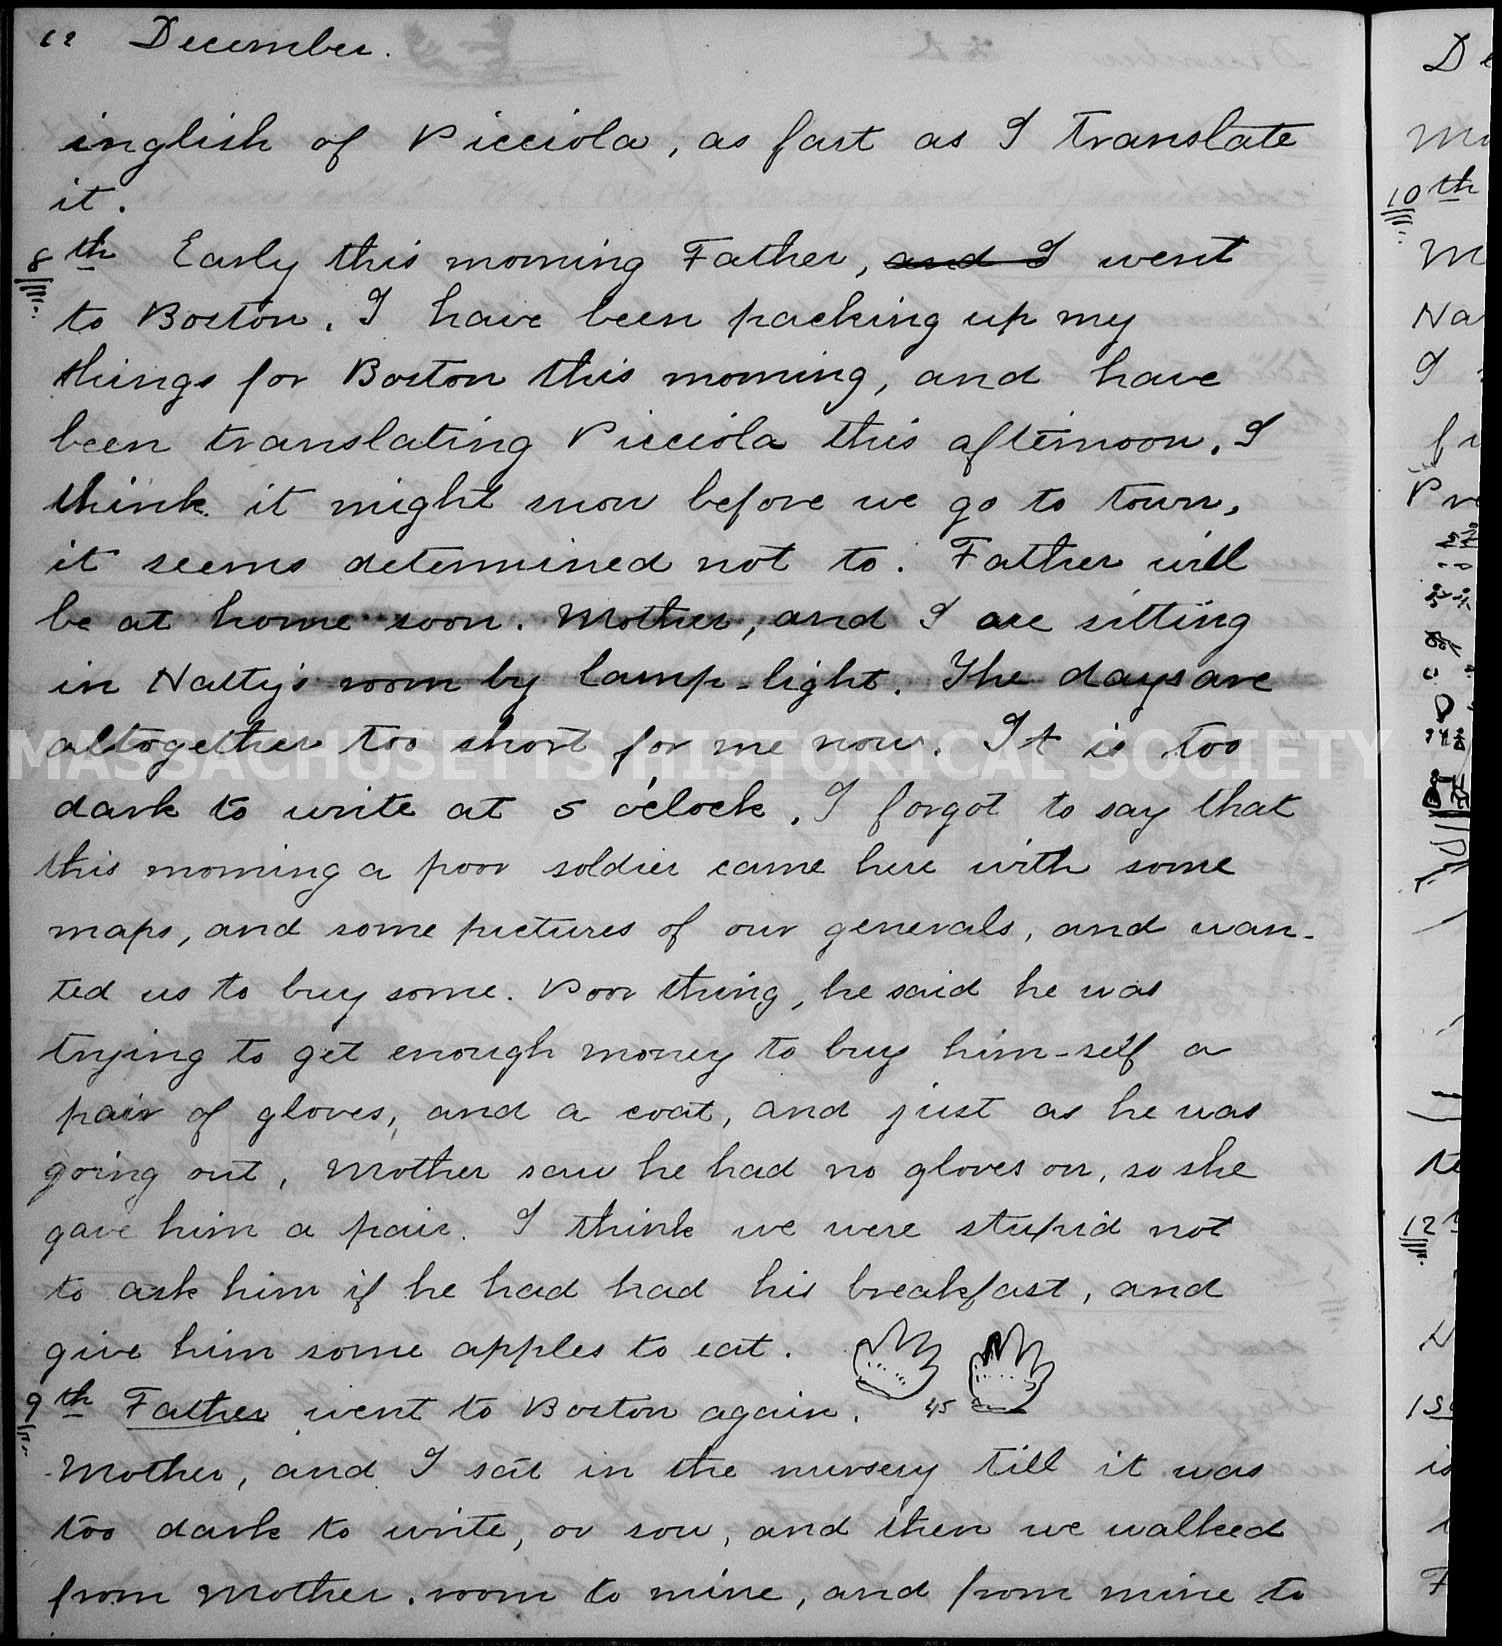 62 December.
inglish of Picciola, as fast as I translate
it.
8th Early this morning Father, and I went
to Boston. I have been packing up my
things for Boston this morning, and have
been translating Picciola this afternoon. I
think it might snow before we go to town,
it seems determined not to. Father will
be at home soon. Mother, and I are sitting
in Natty's room by lamp-light. The days are
altogether too short for me now. It is too
MASSACHUSETTS HISTORICAL SOCIETY
dark to write at 5 o'clock. I forgot to say that
this morning a poor soldier came here with some
maps, and some pictures of our generals, and wan-
ted us to buy some. Poor thing, he said he was
trying to get enough money to buy him-self a
pair of gloves, and a coat, and just as he was
going out, Mother saw he had no gloves on, so she
gave him a pair. I think we were stupid not
to ask him if he had had his breakfast, and
give him some apples to eat.
45
9th Father went to Boston again.
Mother, and I sat in the nursery till it was
too dark to write, or sow, and then we walked
from Mother. room to mine, and from mine to
De
10th
M
Na
I
Pr
12